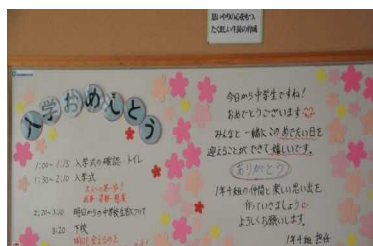 思いやりの心をもつ
たくましい生徒の育成
入学おめでとう
1:00~1:15 入学式の確認・トイレ
1:30~2:10 入学式
2:20~3:10 明日からの中学校生活について
3:20 下校
今日から中学生ですね!
おめでとうございます
みんなと一緒にこのめでたい日を
迎えることができて嬉しいです。
ありがとう
1年4組の仲間と楽しい思い出を
作っていきましょう
よろしくお願いします。
1年4組 担任